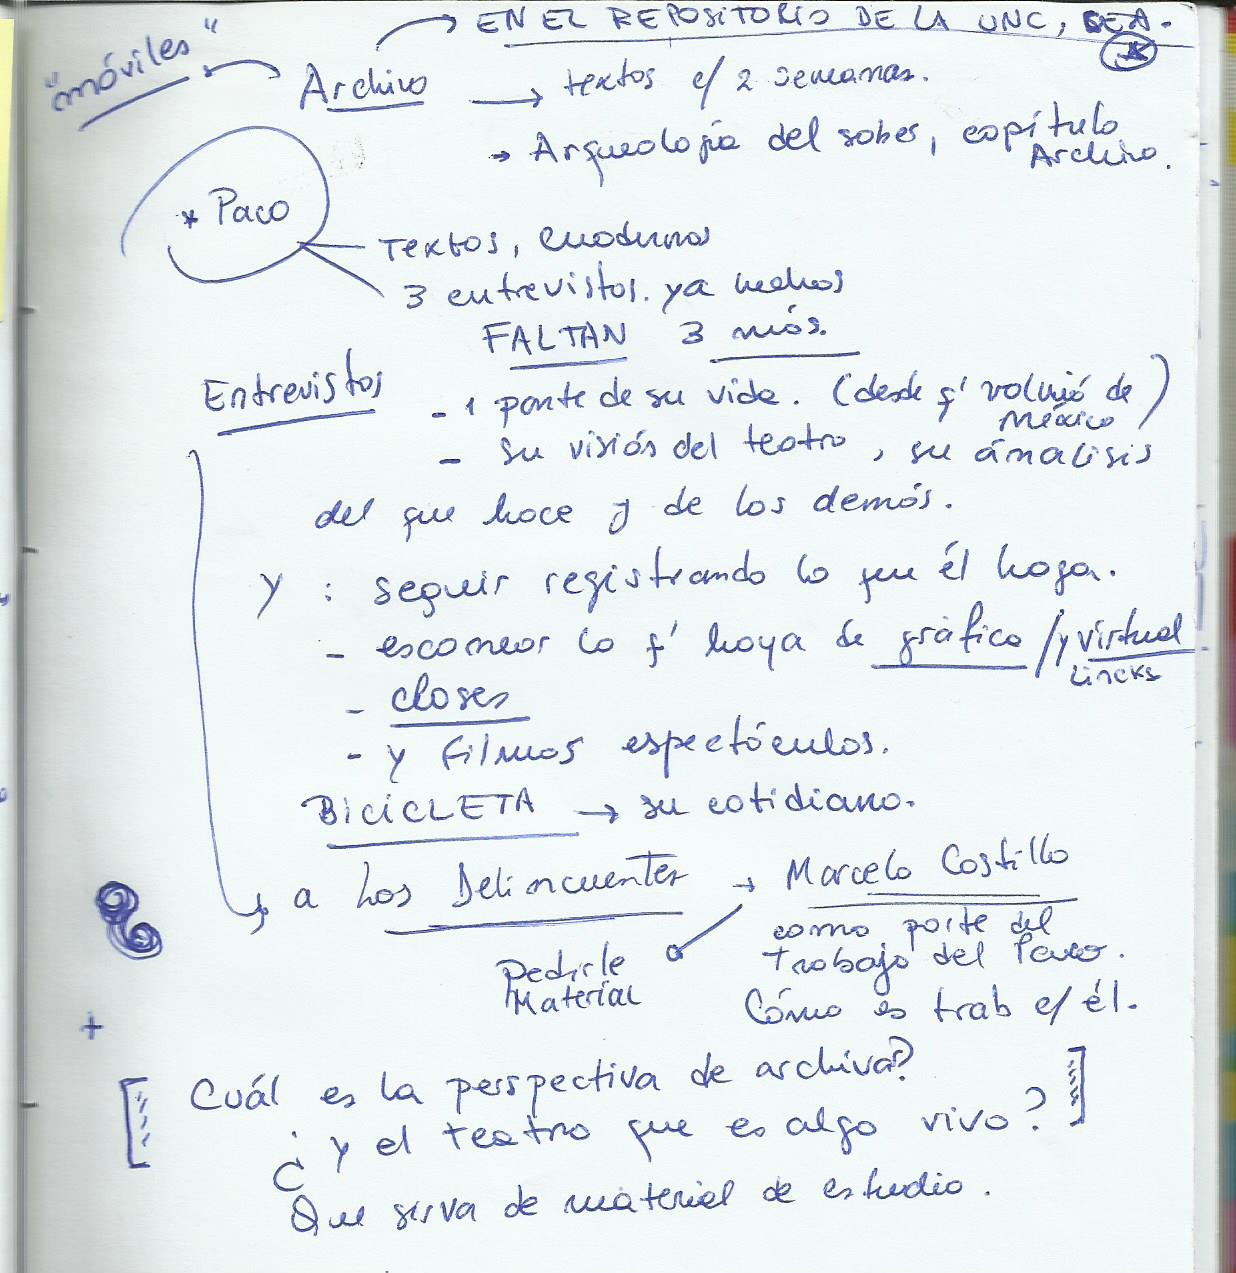 EN EL REPOSITORIO DE LA UNC, CEA.
"móviles"
Archivo → textos c/ 2 semanas.
→ Arqueología del saber, capítulo
Archivo.
* Paco
Textos, cuadernos
3 entrevistas. ya hechas
FALTAN 3 más.
Entrevistas
- 1 parte de su vida. (desde q' volvió de
México)
- Su visión del teatro, su ánalisis
del que hace y de los demás.
Y : seguir registrando lo que él haga.
- escanear lo q' haya de gráfico / y virtual
Lincks
- clases
- y filmos espectáculos.
BICICLETA → su cotidiano.
a Los Delincuentes → Marcelo Castillo
como parte del
trabajo del Paco.
Pedirle
Material
Cómo es trab c/ él.
+
[ Cuál es la perspectiva de archivar?
¿ y el teatro que es algo vivo? ]
Que sirva de material de estudio.